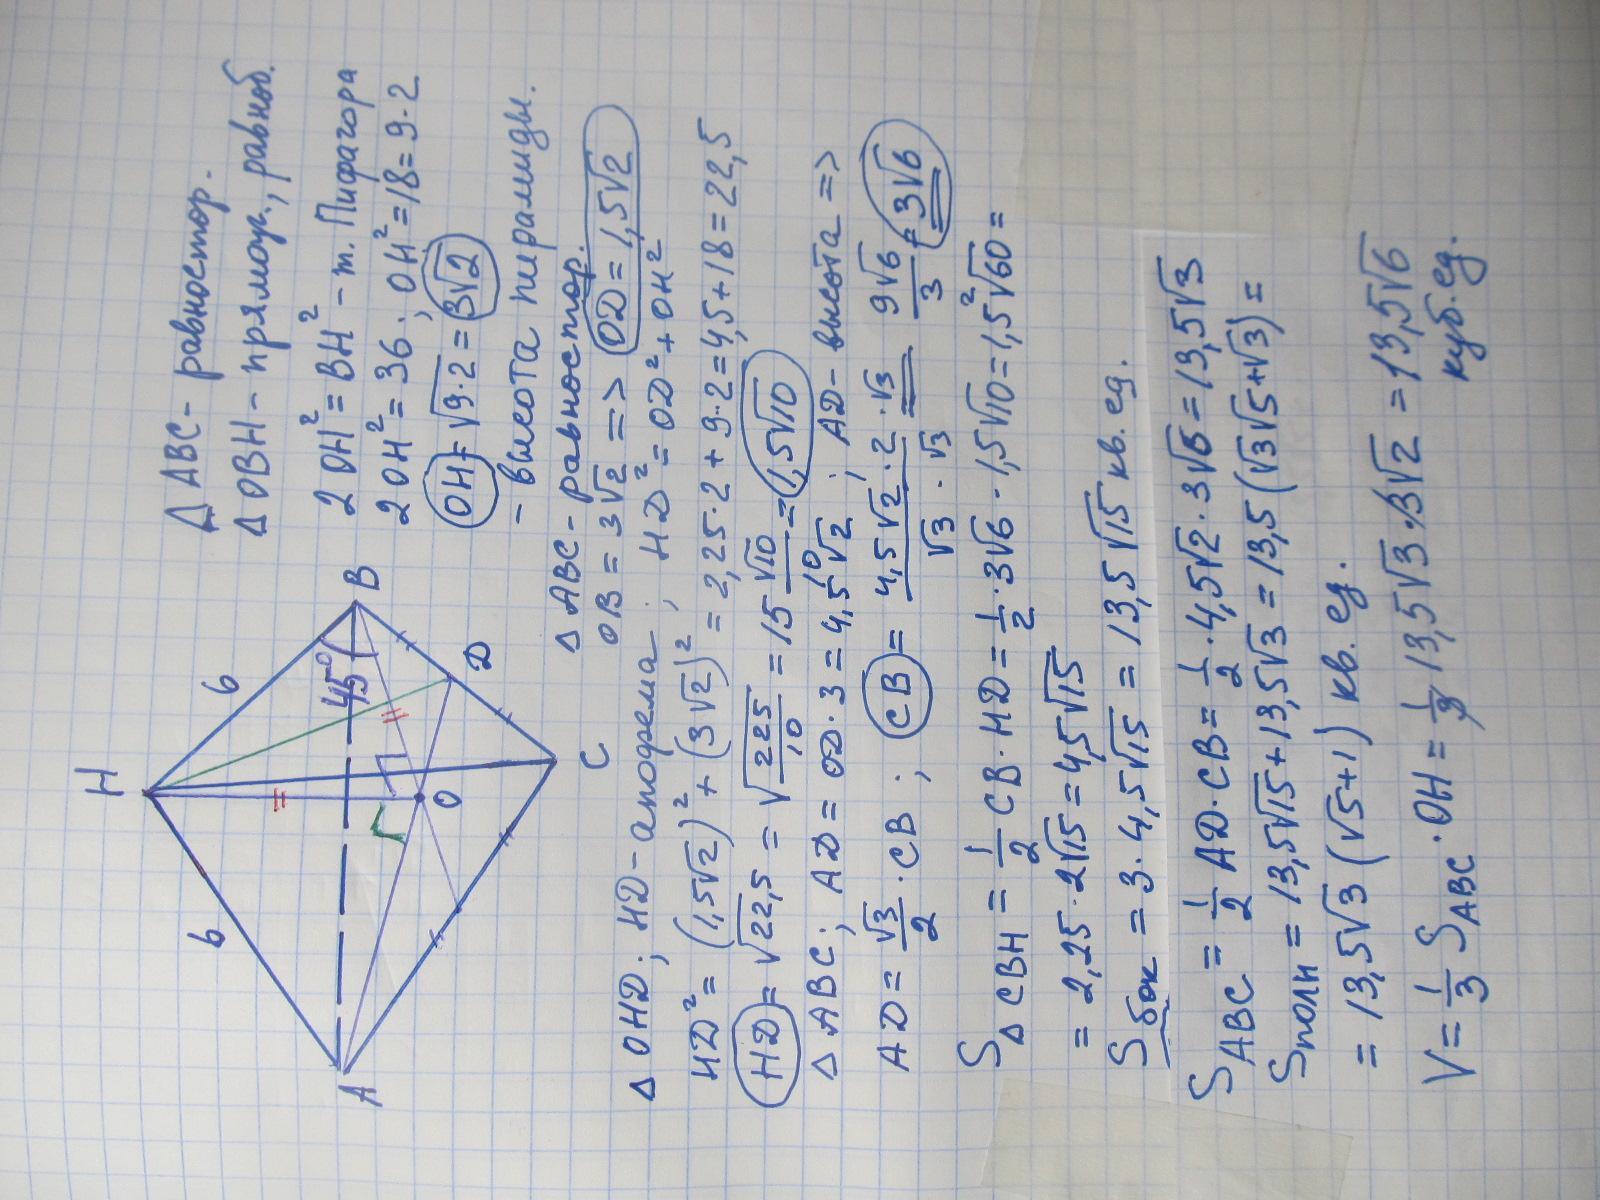 H
6
6
45°
A
B
C
D
O
Δ ABC - равностор.
Δ OBH - прямоуг., равноб.
2 OH² = BH² - т. Пифагора
2 OH² = 36; OH² = 18 = 9·2
OH = √9·2 = 3√2
- высота пирамиды.
Δ ABC - равностор.
OB = 3√2 => OD = 1,5√2
Δ OHD; HD - апофема; HD² = OD² + OH²
HD² = (1,5√2)² + (3√2)² = 2,25·2 + 9·2 = 4,5 + 18 = 22,5
HD = √22,5 = √225/10 = 15√10/10 = 1,5√10
Δ ABC; AD = OD·3 = 4,5√2; AD - высота =>
AD = √3/2 · CB; CB = 4,5√2·2·√3/√3·√3 = 9√6/3 = 3√6
S Δ CBH = 1/2 CB·HD = 1/2 · 3√6 · 1,5√10 = 1,5²√60 =
= 2,25·2√15 = 4,5√15
S бок = 3·4,5√15 = 13,5√15 кв. ед.
S ABC = 1/2 AD·CB = 1/2 · 4,5√2·3√6 = 13,5√3
S полн = 13,5√15 + 13,5√3 = 13,5(√3√5+√3) =
= 13,5√3 (√5+1) кв. ед.
V = 1/3 S ABC · OH = 1/3 · 13,5√3·3√2 = 13,5√6
куб. ед.